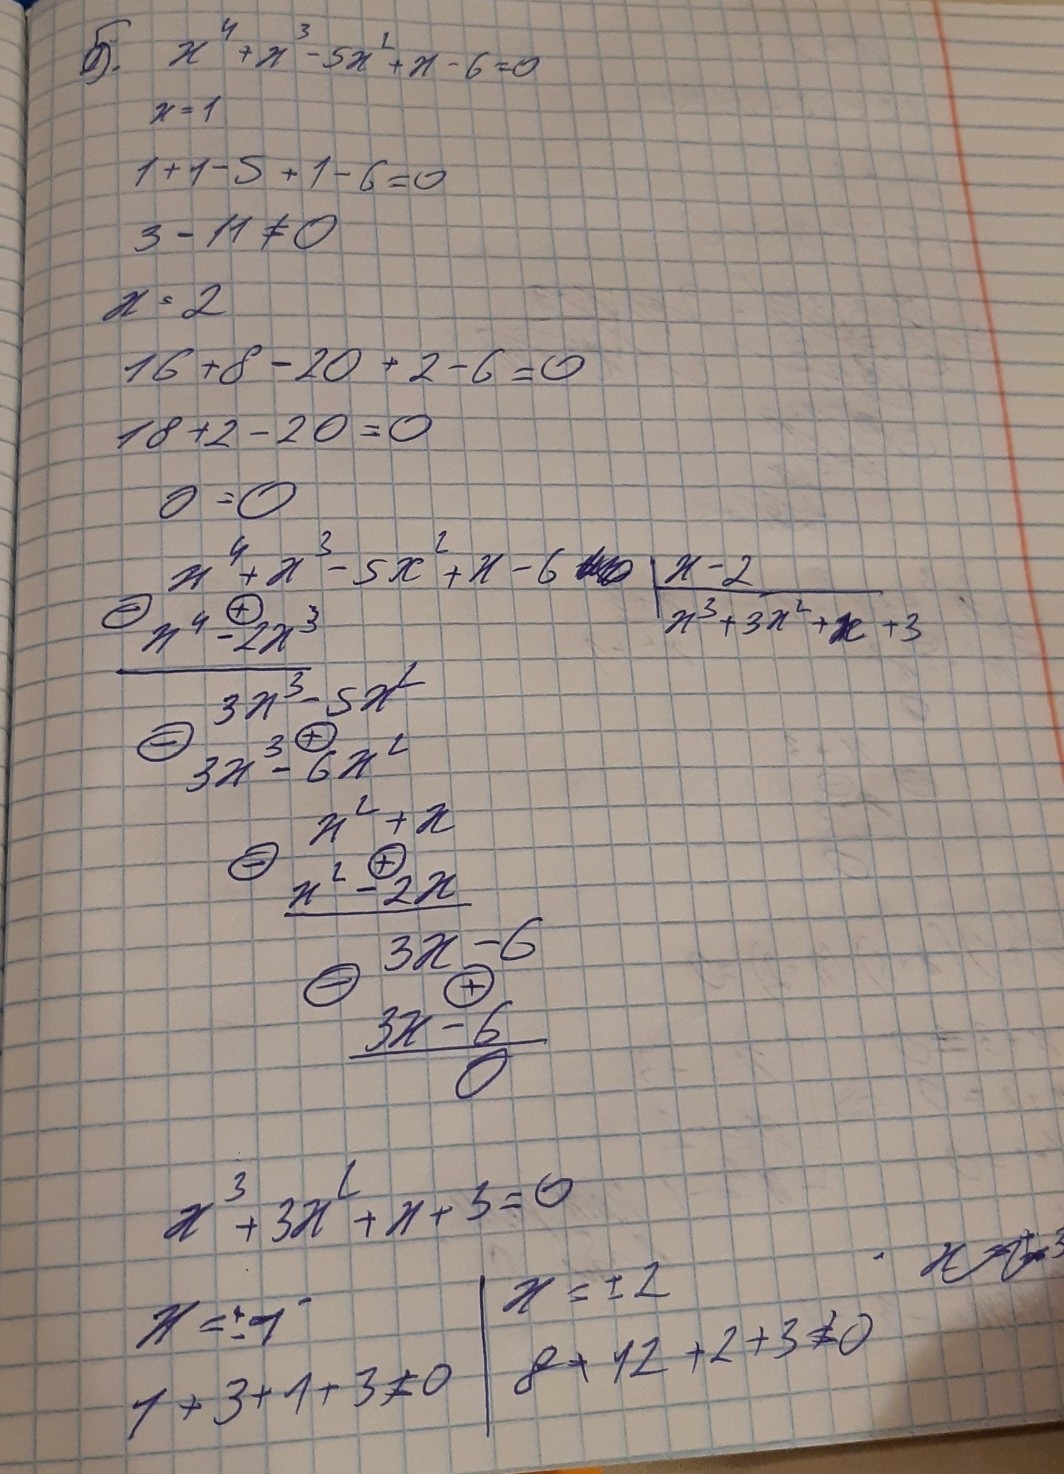 б). x⁴+x³-5x²+x-6=0
x=1
1+1-5+1-6=0
3-11≠0
x=2
16+8-20+2-6=0
18+2-20=0
0=0
x⁴+x³-5x²+x-6 | x-2
⊖ ⊕ x³+3x²+x+3
x⁴-2x³
3x³-5x²
⊖ ⊕
3x³-6x²
x²+x
⊖ ⊕
x²-2x
3x-6
⊖ ⊕
3x-6
0
x³+3x²+x+3=0
x=±1 | x=±2
1+3+1+3≠0 | 8+12+2+3≠0